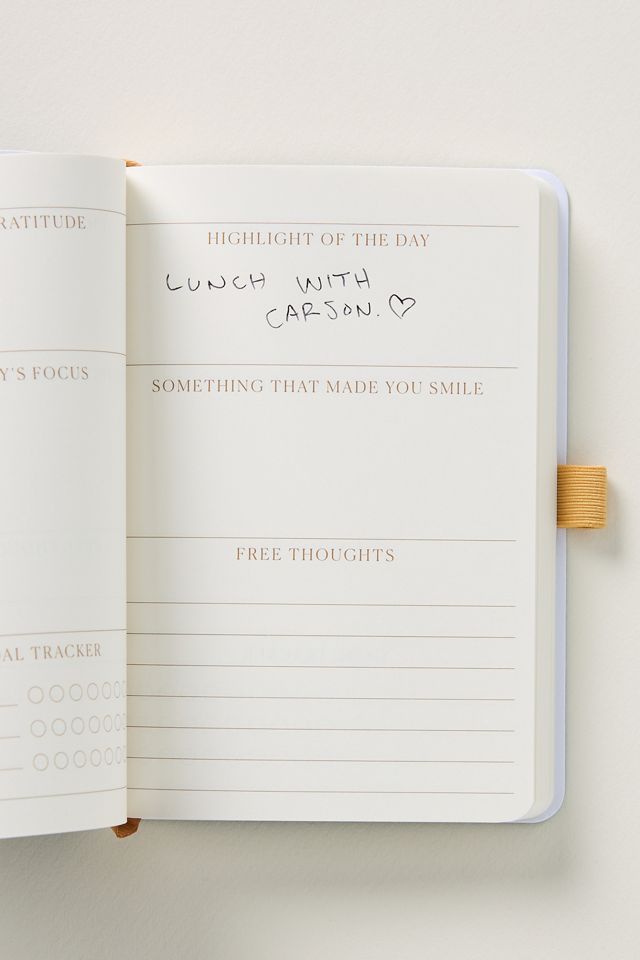 RATITUDE
Y'S FOCUS
AL TRACKER
HIGHLIGHT OF THE DAY
LUNCH WITH
CARSON. ♡
SOMETHING THAT MADE YOU SMILE
FREE THOUGHTS